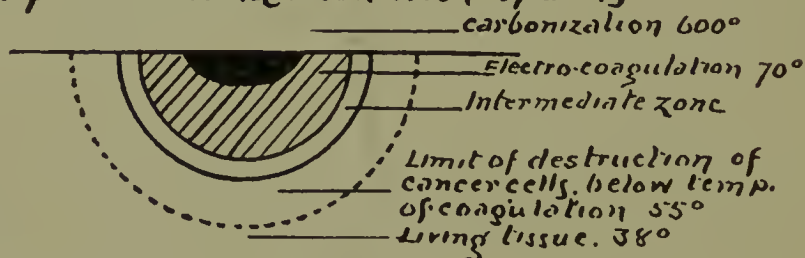 carbonization 600°
Electro-coagulation 70°
Intermediate zone
Limit of destruction of
cancer cells, below temp.
of coagulation 55°
Living tissue. 38°